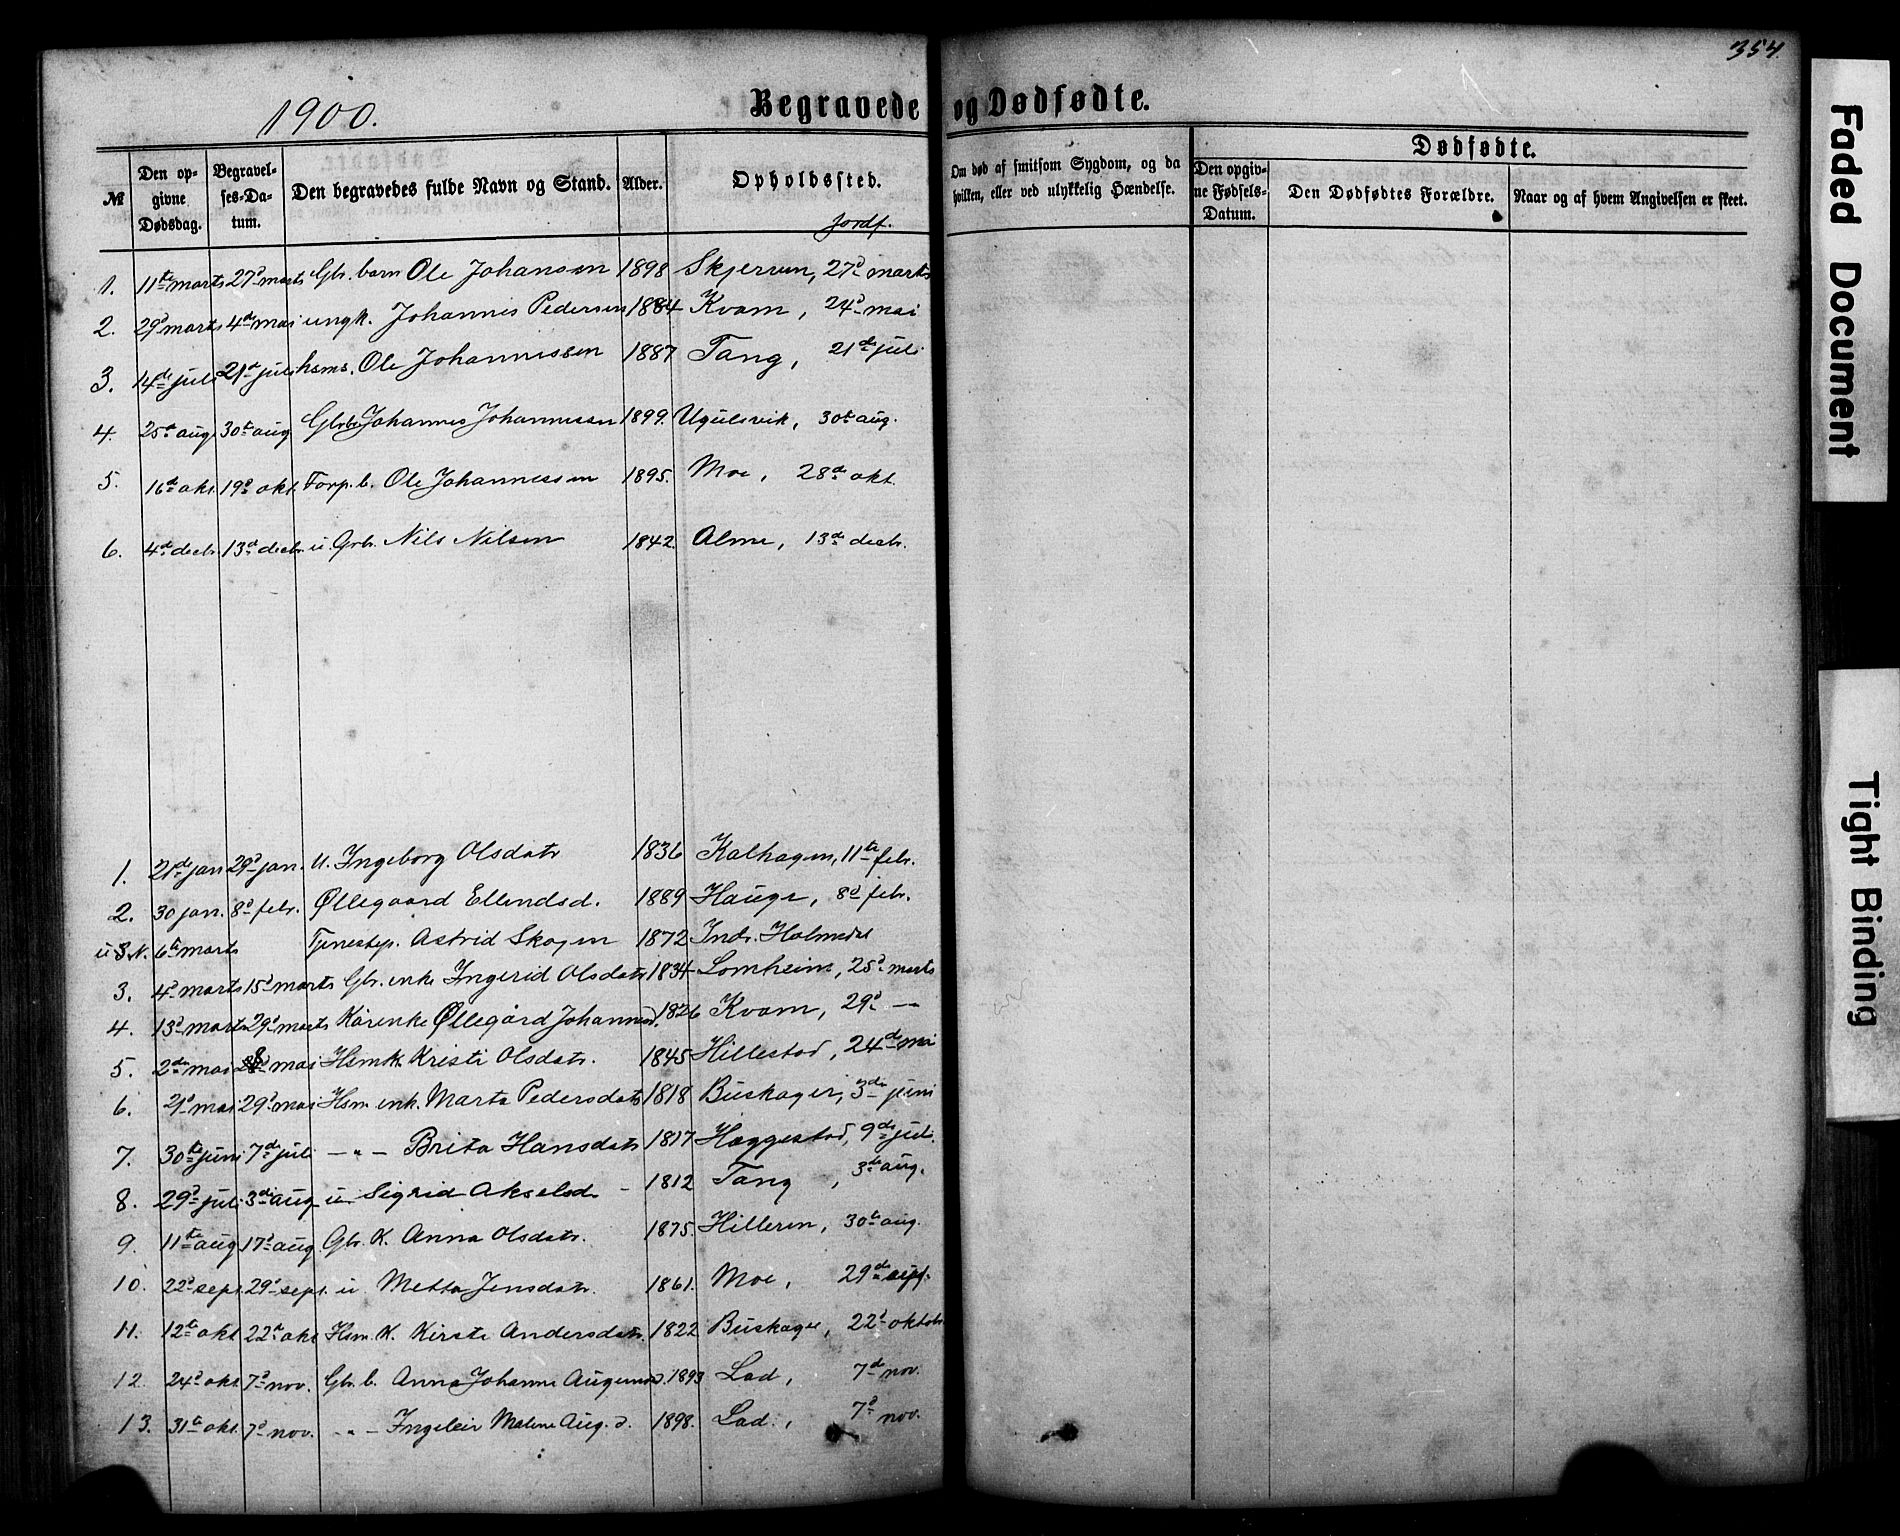 354.
1900.
Begravede og Dødfødte.
№
Den opgivne Dødsdag.
Begravelses-Datum.
Den begravedes fulde Navn og Stand.
Alder.
Opholdssted.
Jordf.
Om død af smitsom Sygdom, og da hvilken, eller ved ulykkelig Hændelse.
Dødfødte.
Den opgivne Fødsels-Datum.
Den Dødfødtes Forældre.
Naar og af hvem Angivelsen er skeet.
1. 11te marts 27d marts Gbr. barn Ole Johansen 1898 Skjerven, 27d marts
2. 29d marts 4de mai ungk. Johannes Pedersen 1884 Kvam, 24d mai
3. 14de juli 21de juli hsms. Ole Johannessen 1887 Tang, 21de juli
4. 25de aug. 30te aug. Gbrb. Johannes Johannessen 1899. Ugulsvik, 30te aug.
5. 16de okt. 19d okt. Forp. b. Ole Johannessen 1895. Moe, 28de okt.
6. 4de decbr. 13de decbr. u. Grb. Nils Nilsen 1842. Alme, 13de decbr.
1. 21de jan. 29d jan. U. Ingeborg Olsdatr 1836 Kalhagen, 11te febr.
2. 30 jan. 8d febr. Øllegaard Ellendsd. 1889 Hauge, 8d febr.
u. N. 6te marts Tjenestep. Astrid Skogen 1872 Indr. Holmedal
3. 4d marts 15d marts Gbr. enke Ingerid Olsdatr 1834 Lomheim, 25d marts
4. 13d marts 29d marts Kårenke Øllegård Johannesd. 1826 Kvam, 29d —
5. 2de mai 8d mai Hsmk. Kristi Olsdatr. 1845 Hillestad, 24de mai
6. 21d mai 29d mai Hsm. enk. Marta Pedersdatr 1818 Buskager, 3de juni
7. 30te juni 7de juli —"— Brita Hansdatr 1817 Haggestad, 9de juli.
8. 29d juli 3de aug. u. Sigrid Akselsd. 1812 Tang, 3de aug.
9. 11te aug 17d aug. Gbr. K. Anna Olsdatr. 1875. Hilleren, 30te aug.
10. 22d sept. 29d sept. u. Metta Jensdatr. 1861. Moe, 29de sept.
11. 12te okt. 22de okt. Hsm. K. Kirsti Andersdatr. 1822 Buskager, 22d oktob.
12. 24d okt. 7d nov. Gbr. b. Anna Johanne Augunsd. 1893 Lad, 7de nov.
13. 31te okt. 7d nov. —"— Ingeleiv Malene Aug. d. 1898. Lad, 7d nov.
Faded Document
Tight Binding